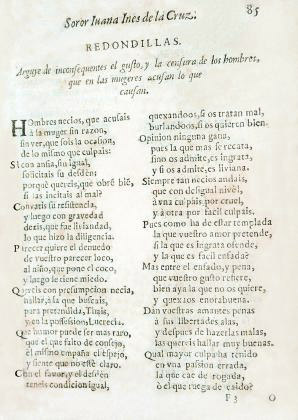 Soror Iuana Ines de la Cruz.
85
REDONDILLAS.
Arguye de inconsequentes el gusto, y la censura de los hombres,
que en las mugeres acusan lo que
causan.
HOmbres necios, que acusais
à la muger sin razon,
sin ver, que sois la ocasion,
de lo mismo que culpais:
Si con ansia, sin igual,
solicitais su desdèn;
porquè quereis, que obrè biè,
si las incitais al mal?
Convatis su resistencia,
y luego con gravedad
dezis, que fue liviandad,
lo que hizo la diligencia.
Parecer quiere el denuedo
de vuestro parecer loco,
al niño, que pone el coco,
y luego le tiene miedo.
Quereis con presumpcion necia,
hallar, à la que buscais,
para pretendida, Thais,
y en la possession, Lucrecia.
Que humor puede ser mas raro,
que el que falto de consejo,
èl mismo empaña el espejo,
y siente que no estè claro.
Con el favor, y el desdèn
teneis condicion igual,
quexandoos, si os tratan mal,
burlandoos, si os quieren bien.
Opinion ninguna gana,
pues la que mas se recata,
sino os admite, es ingrata,
y si os admite, es liviana.
Siempre tan necios andais,
que con desigual nivèl,
à vna culpais por cruel,
y à otra por facil culpais.
Pues como ha de estar templada
la que vuestro amor pretende,
si la que es ingrata, ofende,
y la que es facil enfada?
Mas entre el enfado, y pena,
que vuestro gusto refiere,
bien aya la que no os quiere,
y quexaos enorabuena.
Dàn vuestras amantes penas
à sus libertades alas,
y despues de hazerlas malas,
las quereis hallar muy buenas.
Qual mayor culpa ha tenido
en vna passion errada,
la que cae de rogada,
ò el que ruega de caìdo?
F 3
O